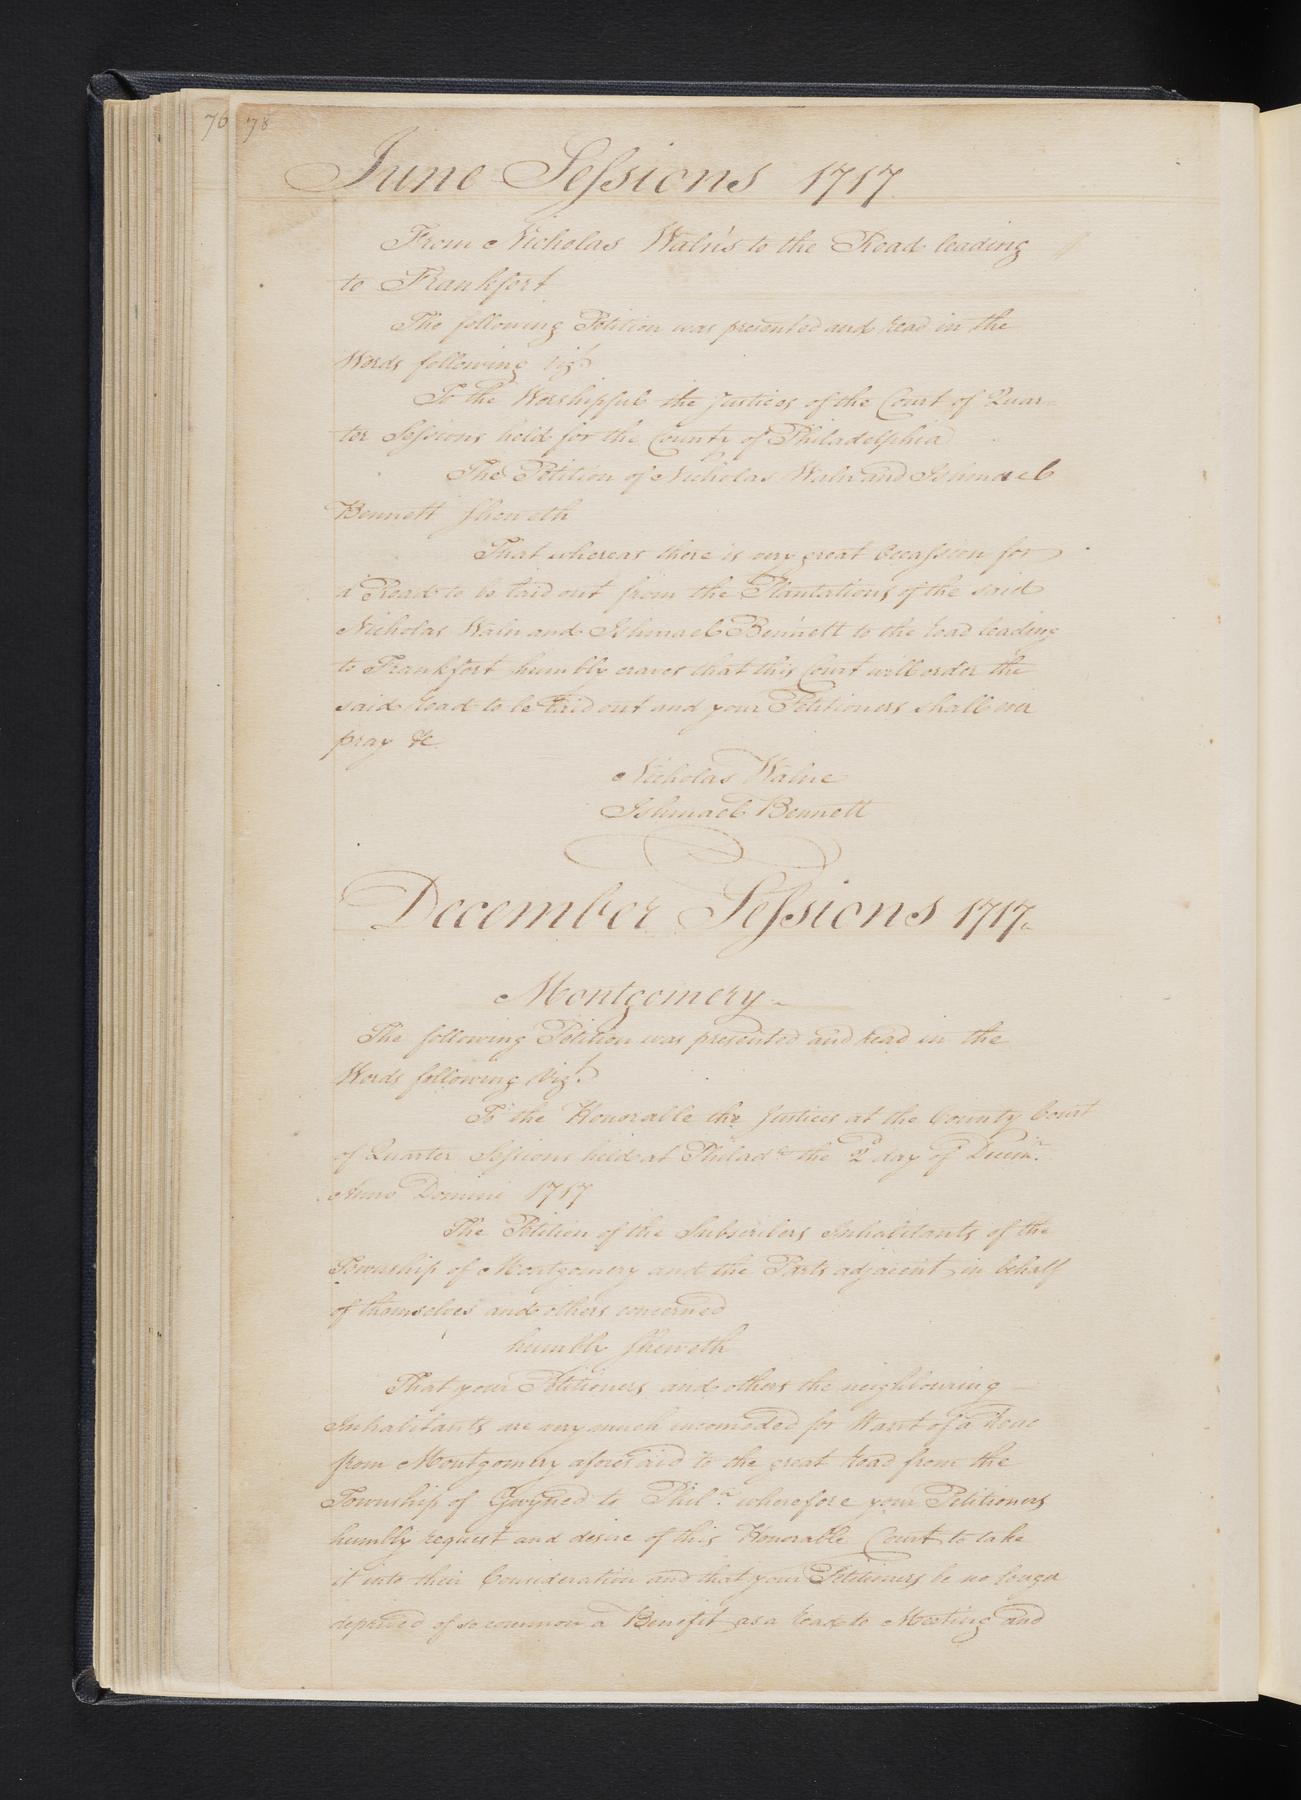 76 78
June Sessions 1717
From Nicholas Waln's to the Road leading
to Frankfort
The following Petition was presented and read in the
Words following vizt
To the Worshipful the Justices of the Court of Quar=
ter Sessions held for the County of Philadelphia
The Petition of Nicholas Waln and Ishmael
Bennett Sheweth
That whereas there is very great Occassion for
a Road to be laid out from the Plantations of the said
Nicholas Waln and Ishmael Bennett to the road leading
to Frankfort humbly craves that this Court will order the
said road to be laid out and your Petitioners shall ever
pray &c
Nicholas Walne
Ishmael Bennett
December Sessions 1717.
Montgomery
The following Petition was presented and read in the
Words following Vizt
To the Honorable the Justices at the County Court
of Quarter Sessions held at Philada the 2d day of Decemr.
Anno Domini 1717
The Petition of the Subscribers Inhabitants of the
Township of Montgomery and the Parts adjacent in behalf
of themselves and others concerned
humbly Sheweth
That your Petitioners and others the neighbouring
Inhabitants are very much incomoded for Want of a Road
from Montgomery aforesaid to the great Road from the
Township of Gwyned to Phila. wherefore your Petitioners
humbly request and desire of this Honorable Court to take
it into their Consideration and that your Petitioners be no longer
deprived of so common a Benefit as a road to Meeting and